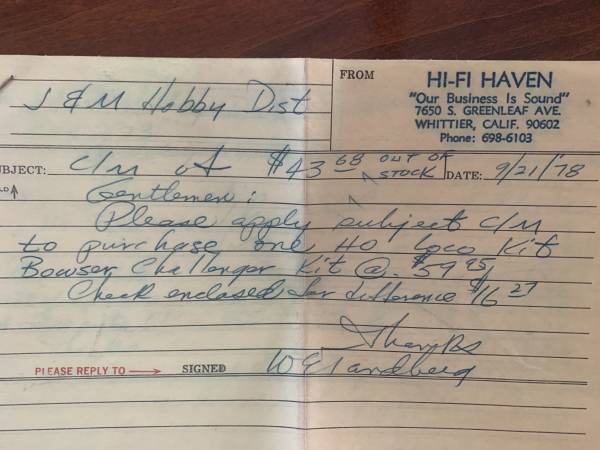 FROM
HI-FI HAVEN
"Our Business Is Sound"
7650 S. GREENLEAF AVE.
WHITTIER, CALIF. 90602
Phone: 698-6103
J & M Hobby Dist
UBJECT: C/M of $43 68 OUT OF STOCK DATE: 9/21/78
Gentlemen:
Please apply subject C/M
to purchase one HO Loco Kit
Bowser Challenger Kit @ $59 95
Check enclosed for difference $16 27
Thanks
PLEASE REPLY TO → SIGNED W E Sandberg